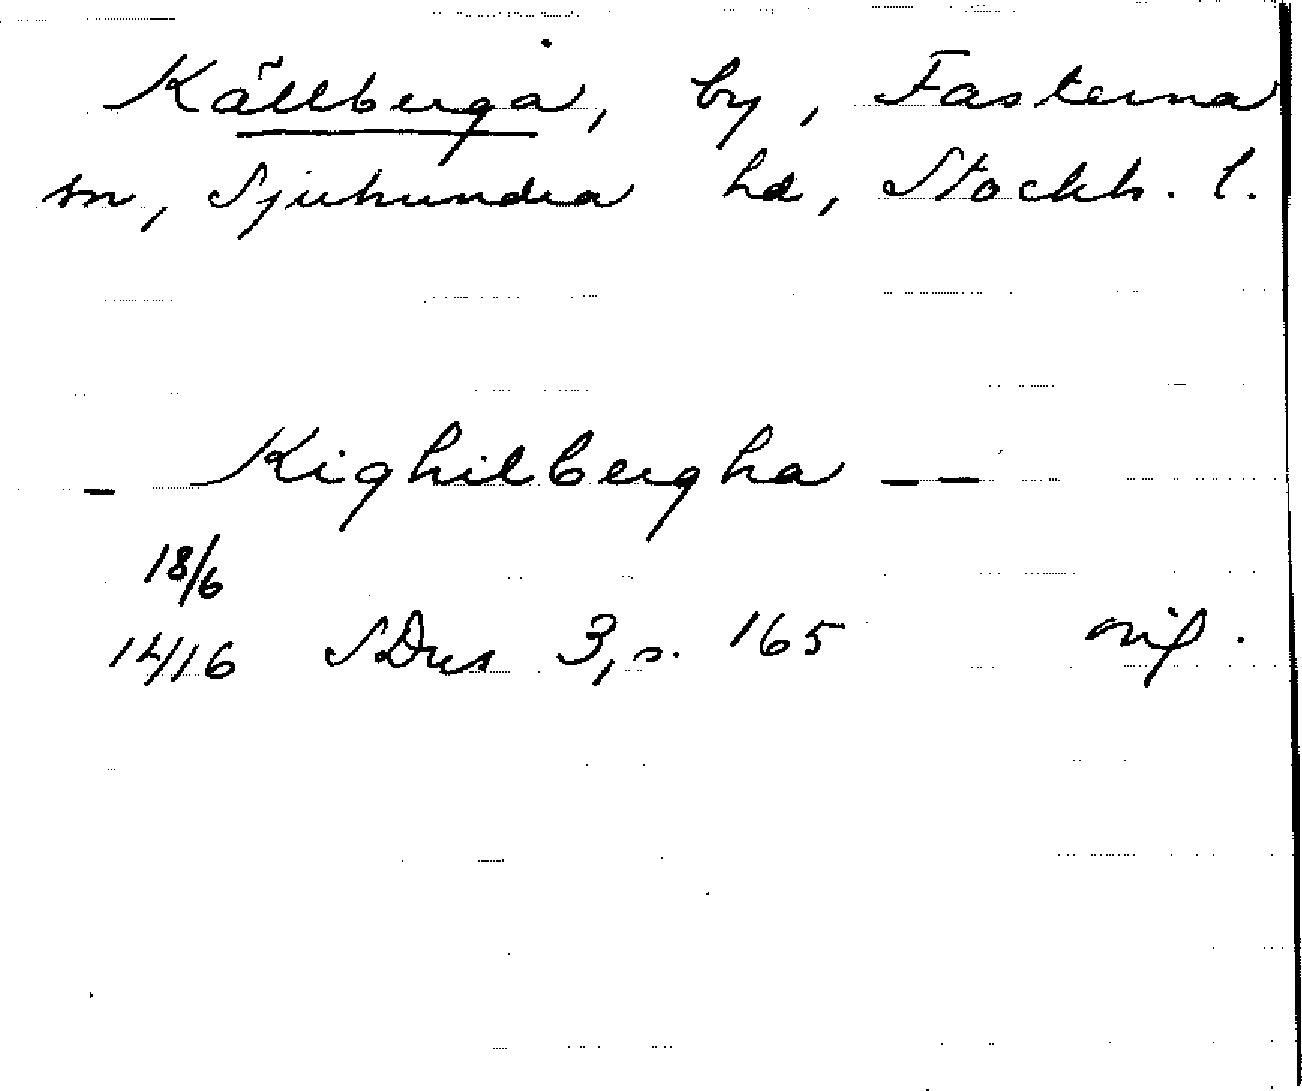 Källberga, by, Fasterna
sn, Sjuhundra hd, Stockh. l.
- Kighilbergha - -
18/6
1416 SDns 3, s. 165 orig.